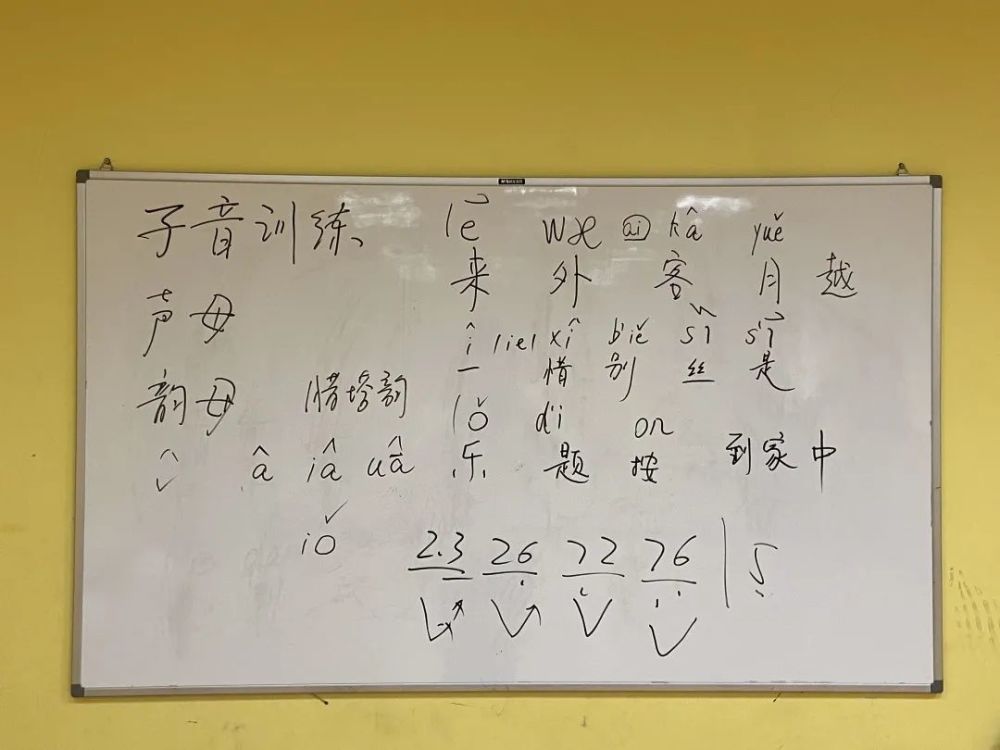 子音训练
lē wæ ai kâ yuě
来 外 客 月 越
声母
î liel xî biě sǐ sī
一 惜 别 丝 是
韵母 惜塔韵
lǒ di on
乐 题 按 到家中
â iâ uâ
iǒ
2.3 26 72 76 | 5